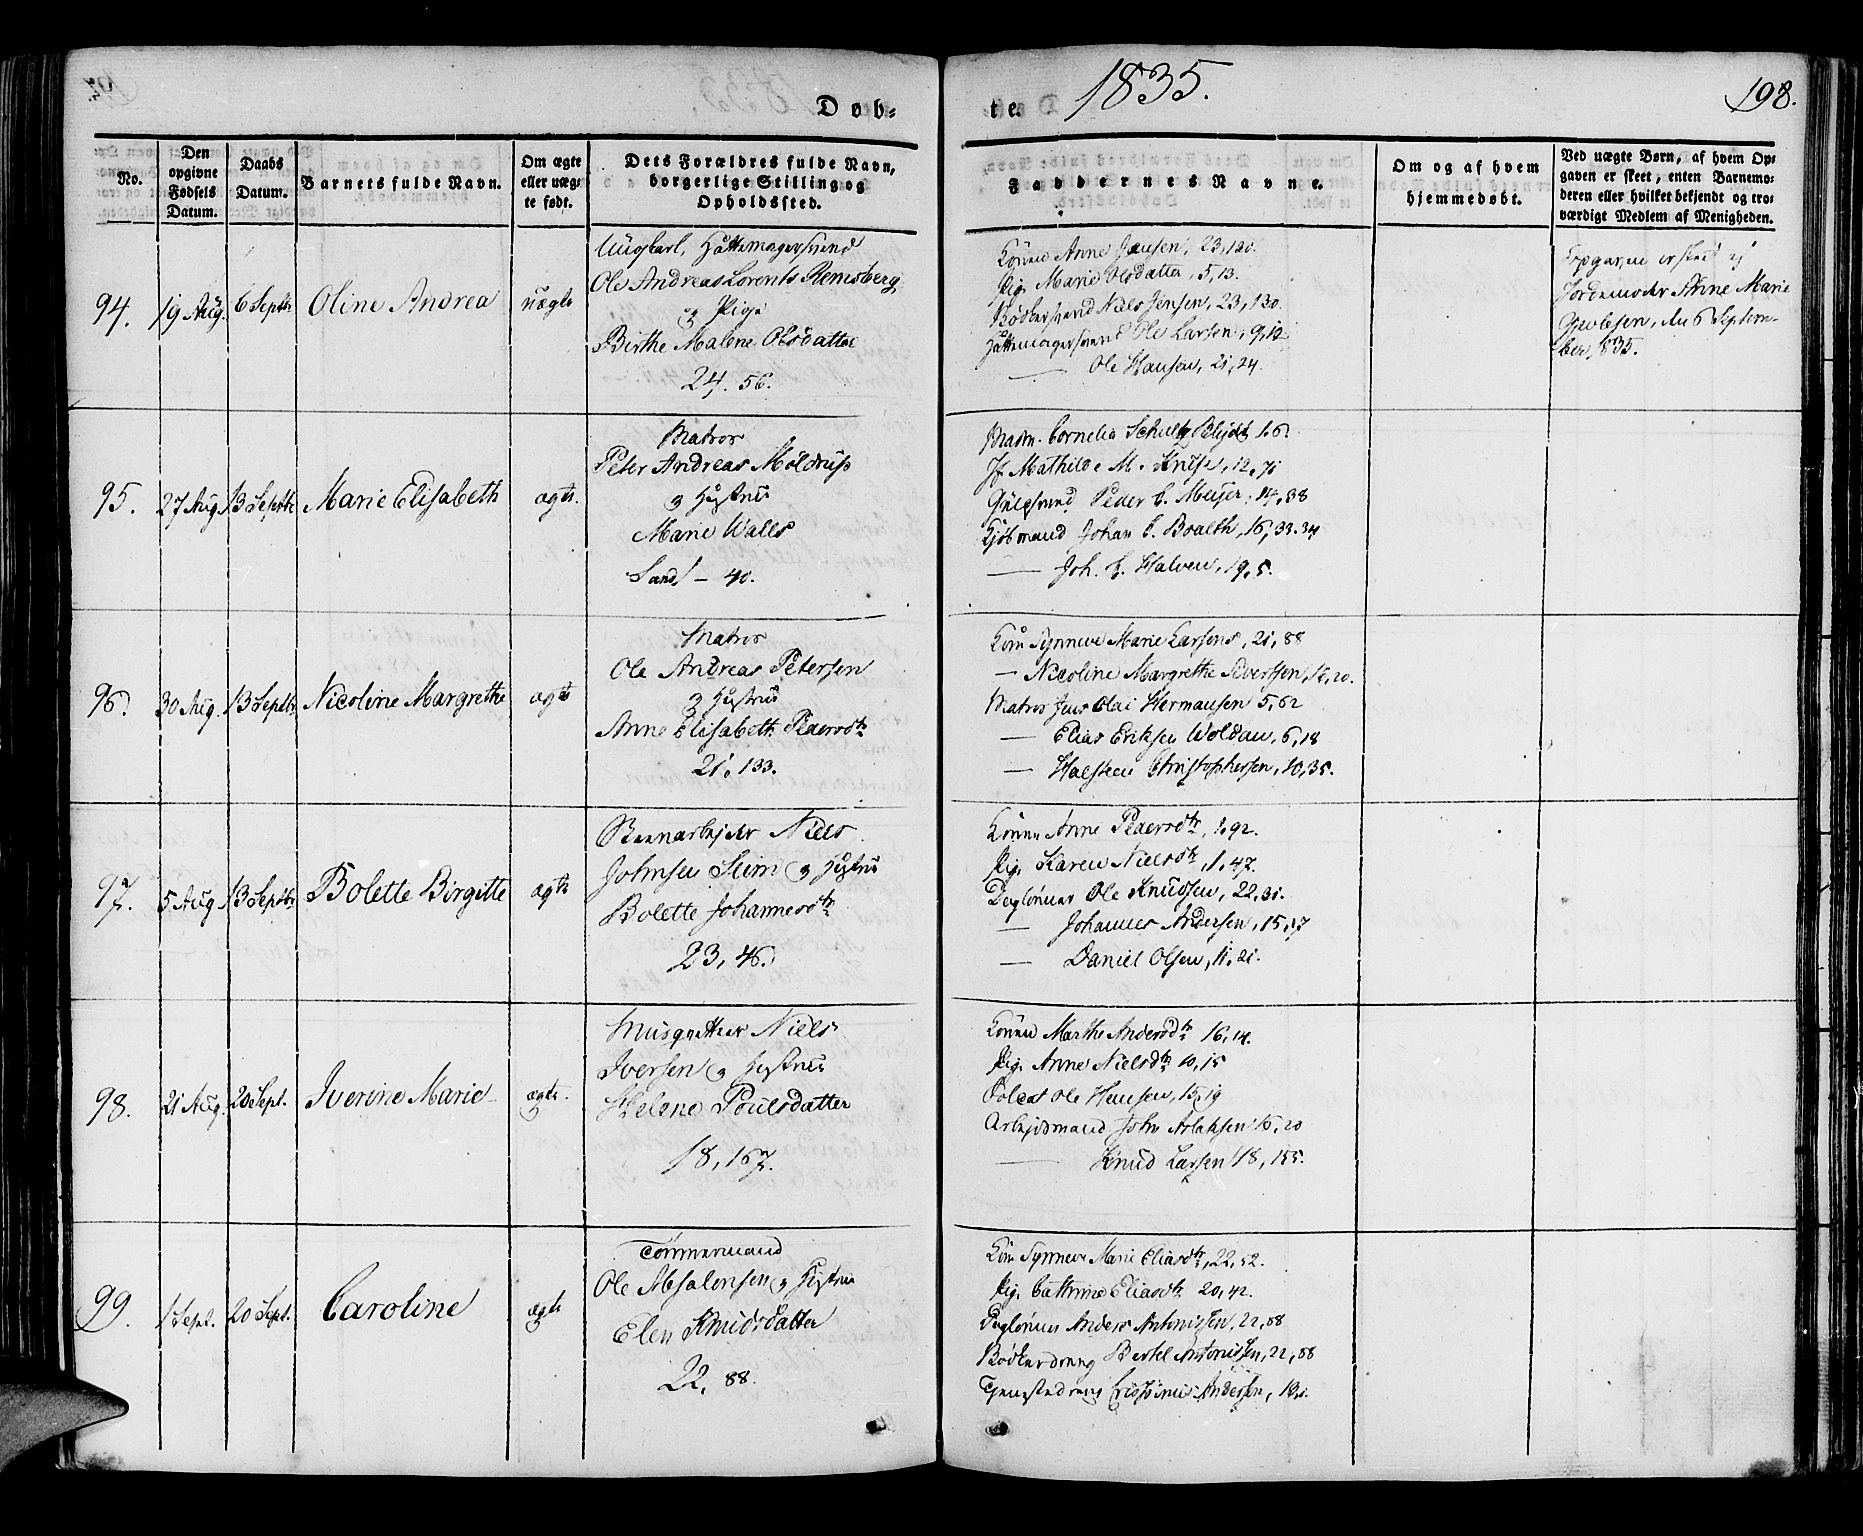 Døb-
te. 1835.
198.
No.
Den opgivne Fødsels Datum.
Daabs Datum.
Barnets fulde Navn.
Om ægte eller uægte født.
Dets Forældres fulde Navn, borgerlige Stilling og Opholdssted.
Faddernes Navne.
Om og af hvem hjemmedøbt.
Ved uægte Børn, af hvem Op-
gaven er skeet, enten Barnemo-
deren eller hvilket bekjendt og tro-
værdigt Medlem af Menigheden.
94. 19 Aug. 6 Septbr Oline Andrea uægte
Ungkarl, Hattemagersvend
Ole Andreas Lorents Remsberg
og Pige
Birthe Malene Olsdatter
24. 56.
Konen Anne Hansen, 23, 130.
Pig. Marie Olsdatter, 5, 13.
Bødkersvend Niels Jensen, 23, 130.
Hattemagersvend Ole Larsen, 9, 12
— Ole Hansen, 21, 24.
Opgaven er skeed af
Jordemoder Anne Marie
den 6 Septem-
ber 1835.
95. 27 Aug. 13 Septbr Marie Elisabeth ægte.
Matros
Peter Andreas Moldrup
og Hustrue
Marie Walls
Sand! – 40.
Madm. Cornelia Schultz
Jf Mathilde M.
Peder C. Meyer, 14, 38
Kjøbmand Johan C. Boalth, 16, 33.34
— Joh. Halven, 19, 5.
96. 30 Aug. 13 Septbr. Nicoline Margrethe ægte
Matros
Ole Andreas Petersen
og Hustrue
Anne Elisabeth Pedersdtr
21, 133.
Kone Synneve Marie Larsens, 21, 88
— Nicoline Margrethe Sivertsen, 16, 20.
Matros Jens Olai Hermansen 5, 62
— Elias Eriksen Woldan, 6, 18
— Halsten Christophersen, 10, 35.
97. 5 Aug 13 Septbr Bolette Birgitte ægte
Steenarbejder Niels
Johnsen Sim og Hustrue
Bolette Johannesdtr
23, 46.
Konen Anne Pedersdtr, 1, 92.
Pig. Karen Nielsdtr, 1, 47.
Daglønner Ole Knudsen, 22, 31.
— Johannes Andersen, 15, 17
— Daniel Olsen, 11, 21.
98. 21 Aug. 20 Sept. Iverine Marie ægte.
Musqetteer Niels
Iversen og Hustrue
Helene Poulsdatter
18, 167.
Konen Marthe Andersdtr 16, 14.
Pig. Anne Nielsdtr 10, 15
Soldat Ole Hansen, 15, 19
Arbejdsmand John Aslaksen 16, 20
— Knud Larsen 18, 155.
99. 1 Sept. 20 Sept. Caroline ægte
Tømmermand
Ole Absalonsen og Hustrue
Elen Knudsdatter
22, 88.
Kone Synneve Marie Eliasdtr, 22, 52.
Pig. Cathrine Eliasdtr 20, 42.
Daglønner Anders Antonissen, 22, 88
Bødkerdreng Bertel Antonissen, 22, 88
Tjenestedreng Andersen,